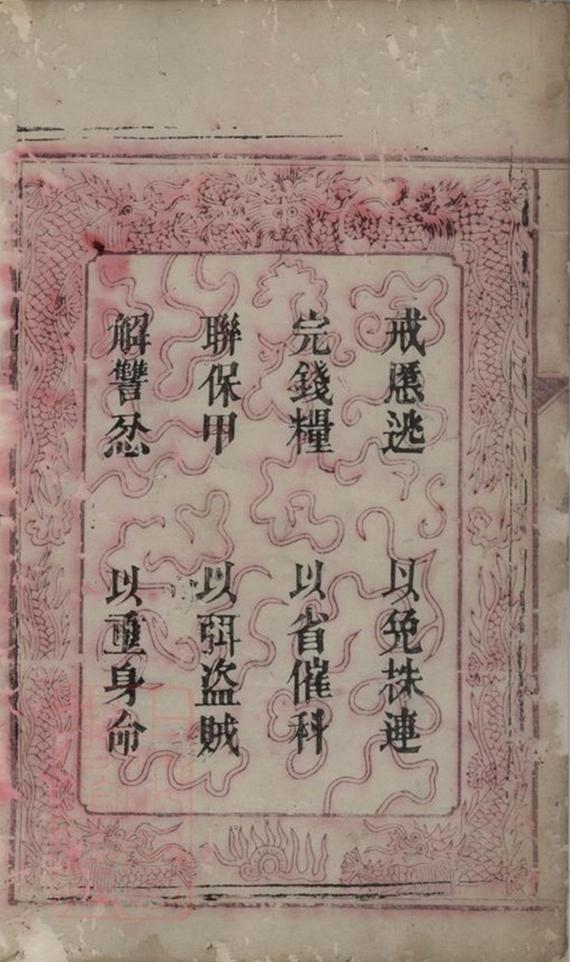 戒逃 以免株連
完錢糧 以省催科
聯保甲 以弭盜賊
解讐忿 以重身命